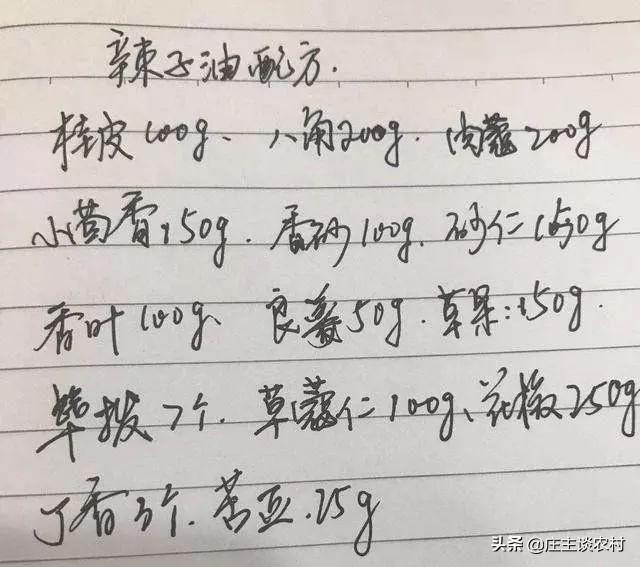 辣子油配方.
桂皮100g、八角200g.肉蔻200g
小茴香150g.香砂100g.砂仁150g
香叶100g、良姜50g.草果:150g.
荜拨7个.草蔻仁100g、花椒250g
丁香5个.苦豆.25g
头条 @庄主谈农村